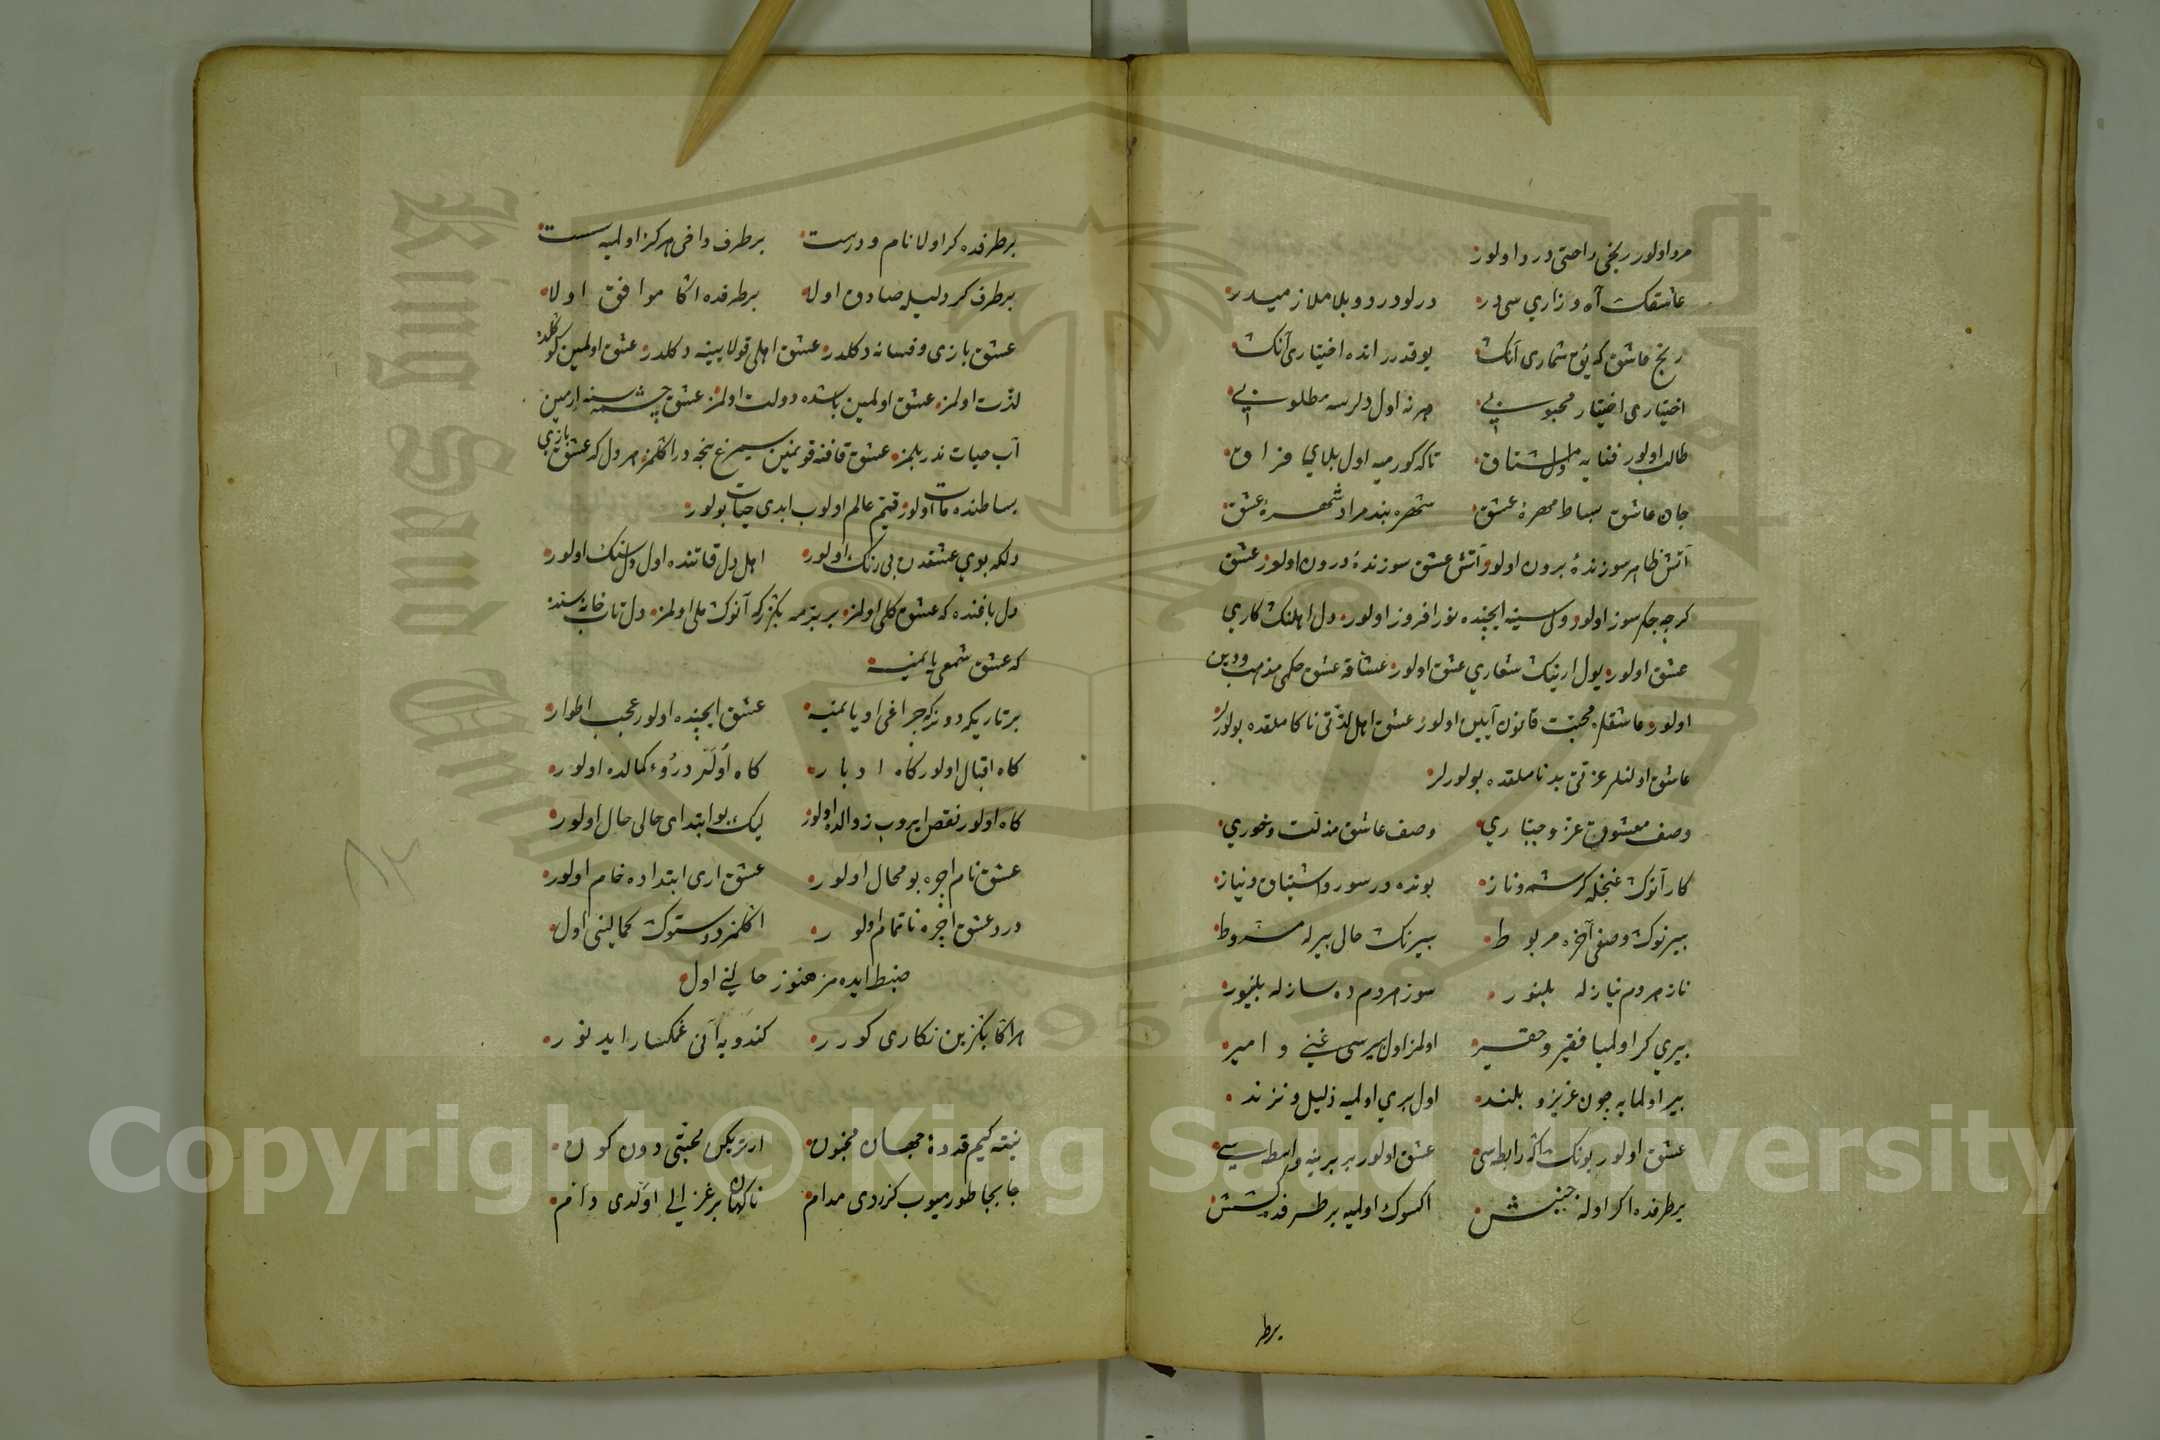 مرد اولور رنجی راحتی درد اولور
عاشقك آه و زاری سی در درلو درد و بلا ملازمیدر
رنج عاشق که یوق شماری آنك یوقدر انده اختیاری آنك
اختیاری اختیار محبوبی هر نه اول دلرسه مطلوبی
طالب اولور فنایه اول مشتاق تاکه کورمیه اول بلای فراق
جان عاشق بساط مهرهٔ عشق شهره بند مراد شهرهٔ عشق
آتش ظاهر سوزندهٔ برون اولور آتش عشق سوزندهٔ درون اولور عشق
کرچه جکر سوز اولور ول سینه ایچنده نور افروز اولور دل اهلنك کاری
عشق اولور یول ارینك شعاری عشق اولور عشاقه عشق حکمی مذهب و دین
اولور عاشقلره محبت قانون آیین اولور عشق اهل لذتی ناکاملقده بولور
عاشق اولنلر عزتی بدناملقده بولورلر
وصف معشوق عز و جباری وصف عاشق مذلت و خوری
کار آنوك غنجله کرشمه و ناز بونده در سوز و اشتیاق و نیاز
بیرنوك وصفی آخره مربوط بیرنك حالی بیرله مشروط
ناز هر دم نیازله بلنور سوز هر دم ده سازله بلنور
بیری کر اولمیا فقیر و حقیر اولمز اول بیرسی غنی و امیر
بیر اولمایه چون عزیز و بلند اول بری اولمیه ذلیل و نژند
عشق اولور بونك اکر رابطه سی عشق اولور بر برینه واسطه سی
برطرفده اکر اوله جنبش اکسوك اولمیه برطرفده کشش
برطر
برطرفده کر اولا نام و درست برطرف داخی هرکز اولمیه سست
برطرف کر دلیله صادق اولا برطرفده اڭا موافق اولا
عشق بازی و فسانه دکلدر عشق اهلی قولایینه دکلدر عشق اولمین کوکلده
لذت اولمز عشق اولمین باشده دولت اولمز عشق چشمه سنه ایرمین
آب حیات ندر بلمز عشق قافنه قونمین سیمرغ نجه در اڭلمز هر دل که عشق بازی
بساطنده مات اولور قیتم عالم اولوب ابدی حیات بولور
دلکه بوی عشقدن بی رنك اولور اهل دل قاتنده اول دل سنك اولور
دل باغنده که عشق کلی اولمز بر بزمه بکزر که آنوك ملی اولمز دل تاب خانه سنده
که عشق شمعی یانمیه
بر تاریکه دونر که چراغی اویانمیه عشق ایچنده اولور عجب اطوار
کاه اقبال اولور کاه ادبار کاه اولر درو کمالده اولور
کاه اولور نقص ایروب زوالده اولور لیك بو ابتدای حالی حال اولور
عشق نام اجره بو محال اولور عشق اری ابتداده خام اولور
درد عشق اچره ناتمام اولور اڭلمز دوستوك کمالینی اول
ضبط ایده مز هنوز حالنی اول
هر اڭا بکزر بن نکاری کورر کندویه آنی غمکسار ایدنور
نیته کیم قدوهٔ جهان مجنون ارتریکن محبتی دون کون
جا بجا طورمیوب کزردی مدام ناکهان بر غزالی اولدی دام